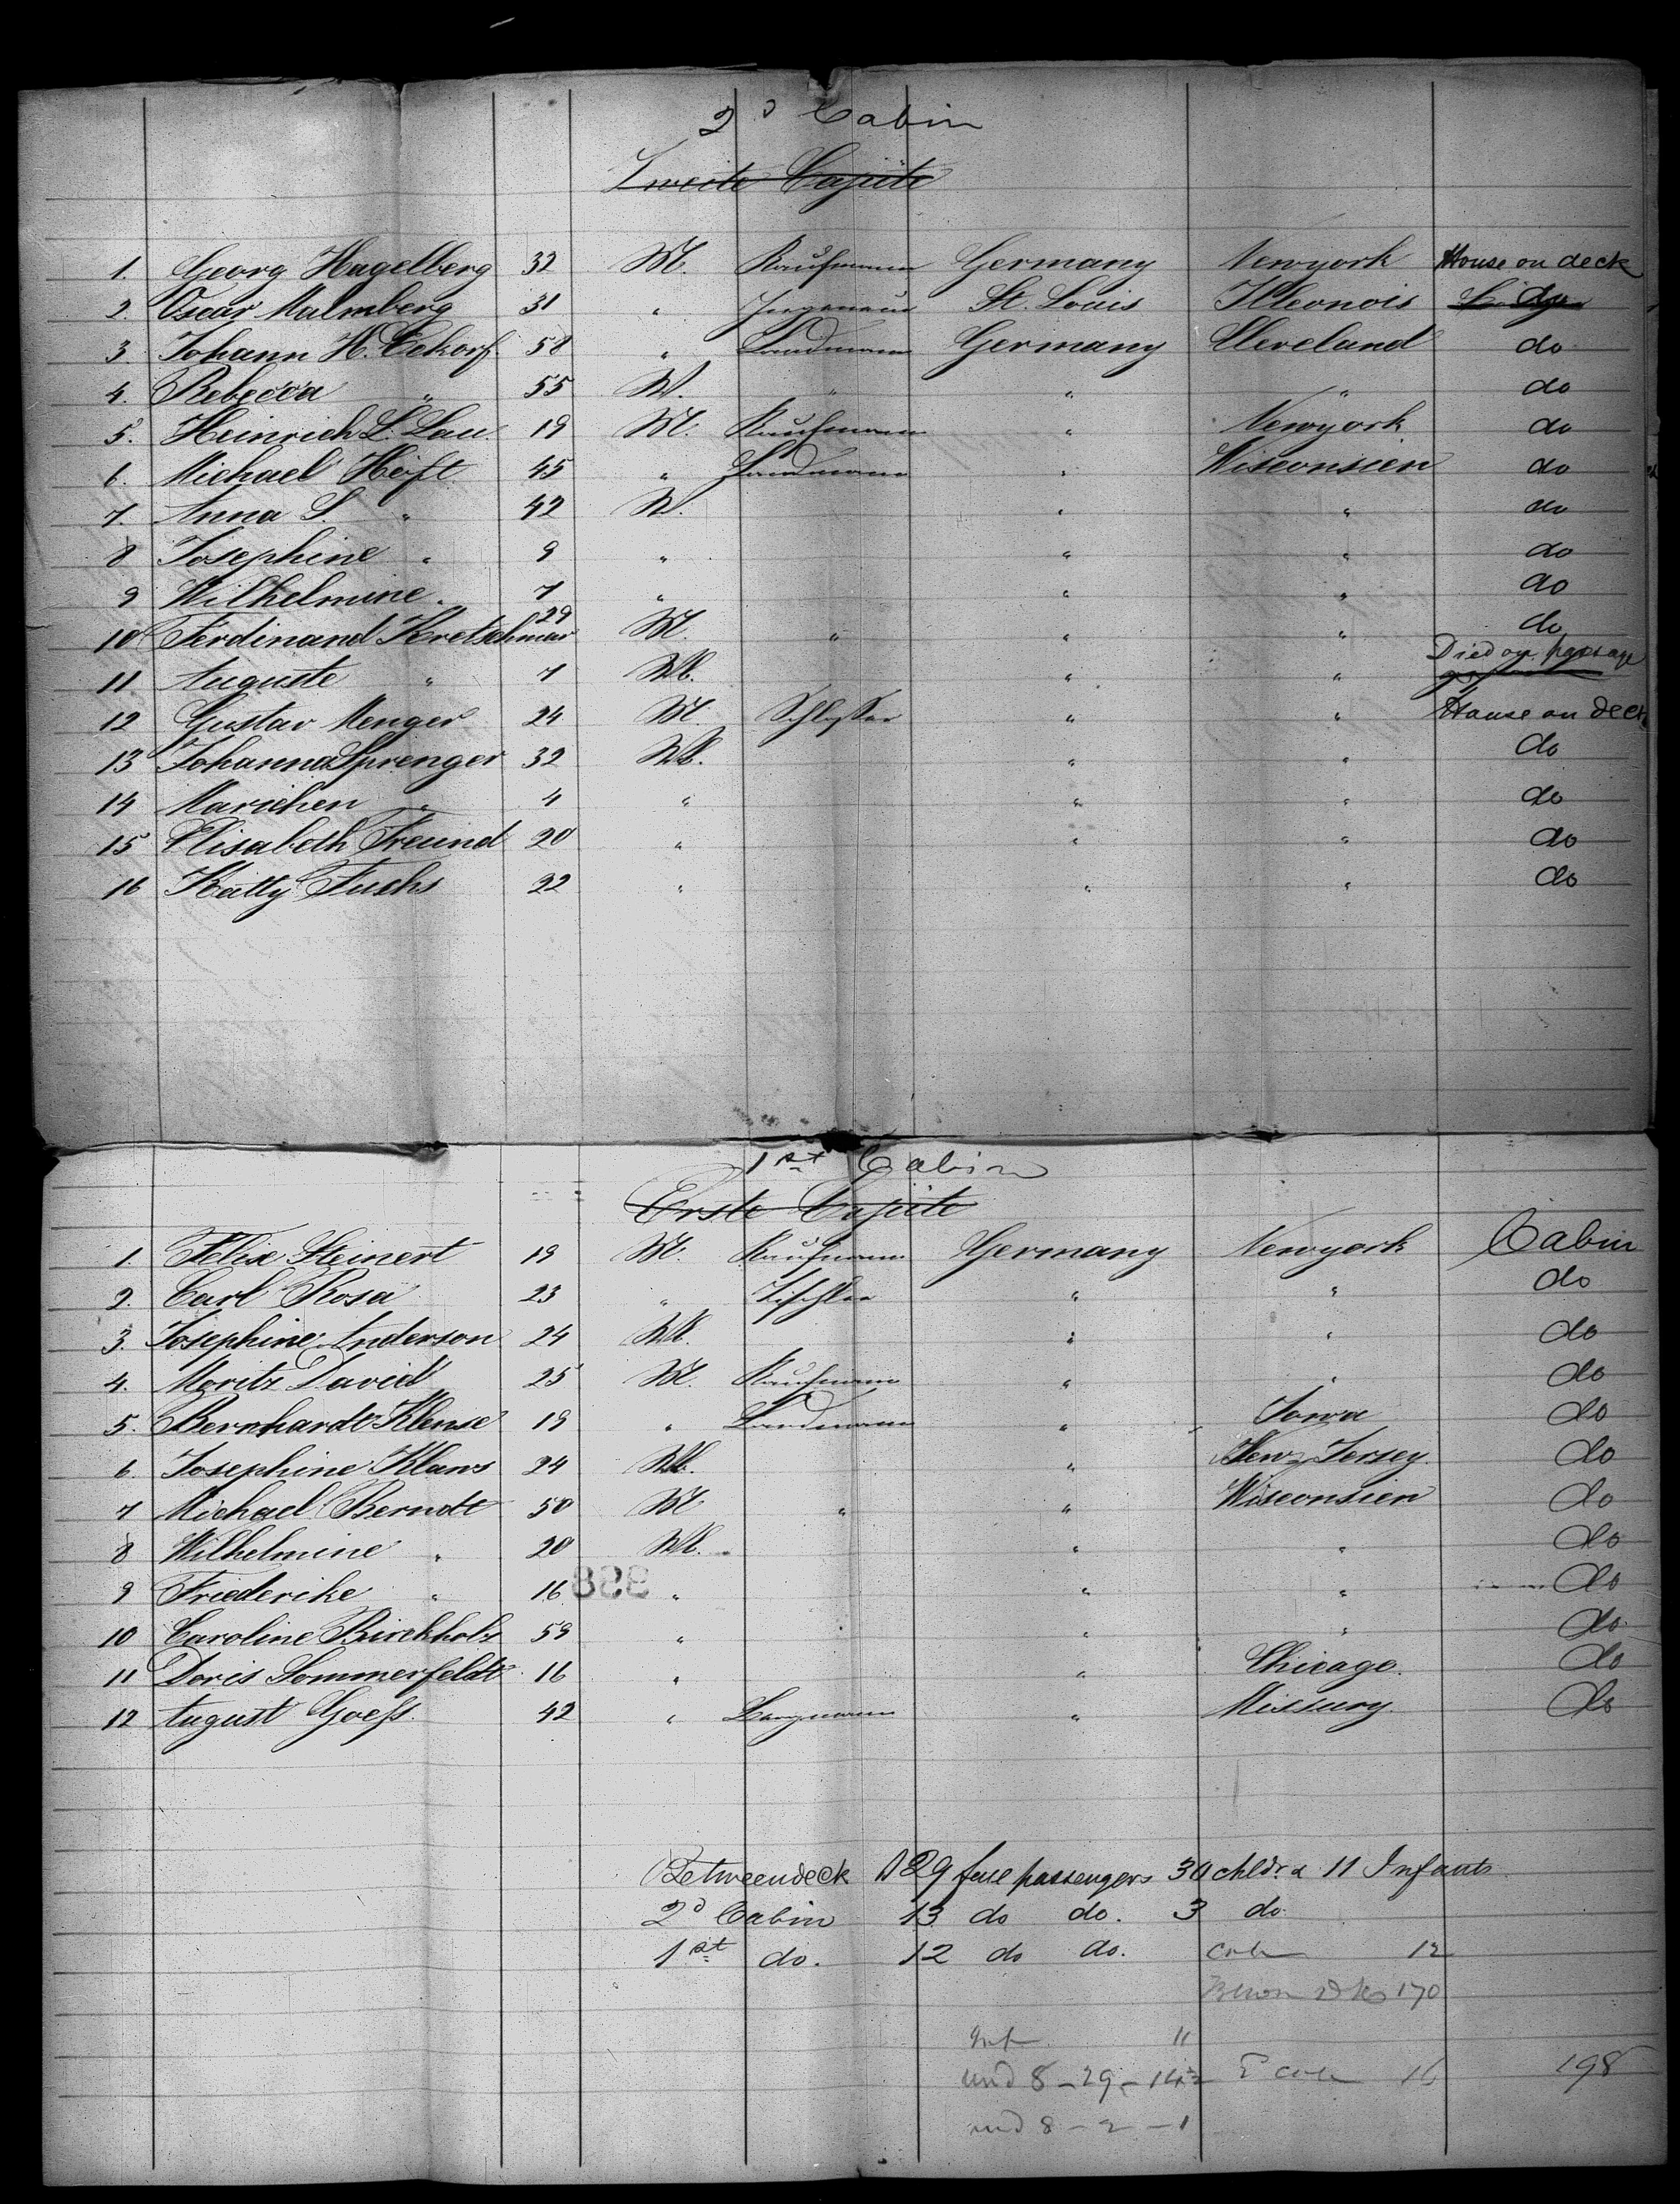 2d Cabin
Zweite Cajüte
1. Georg Hagelberg 32 M. Kaufmann Germany Newyork House on deck
2. Oscar Malmberg 31 " St. Louis Illeonois do
3 Johann H. Eckorf 58 " Landmann Germany Cleveland do
4. Rebecca " 55 W. " " " do
5. Heinrich L. Lau. 19 M. Kaufmann " Newyork do
6. Michael Höft 45 " Landmann " Wisconsien do
7. Anna S. " 42 W. " " do
8 Josephine " 9 " " " do
9 Wilhelmine " 7 " " " do
10 Ferdinand Kretschmar 29 M. " " " do
11 Auguste " 7 Wb. " " Died on passage
12 Gustav Menger 24 M. Schlosser " " House on deck
13 Johanna Sprenger 32 Wb. " " do
14 Marichen " 4 " " " do
15 Elisabeth Freund 20 " " " do
16 Kätty Fuchs 22 " " " do
1st Cabin
Erste Cajüte
1. Felix Steinert 19 M. Kaufmann Germany Newyork Cabin
2. Carl Rosa 23 " Tischler " " do
3. Josephine Anderson 24 Wb. " " do
4. Moritz David 25 M. Kaufmann " " do
5. Bernhardt Klense 19 " Landmann " Iowa do
6 Josephine Klaws 24 Wb. " New-Jersey. do
7 Michael Berndt 50 M " " Wisconsien do
8 Wilhelmine " 20 Wb. " " do
9 Friederike " 16 " " " do
10 Caroline Birckholz 59 " " " do
11 Doris Sommerfeldt 16 " " Chicago. do
12 August Goeß. 42 " " Missury. do
Betweendeck 129 full passengers 30 chldr & 11 Infants
2d Cabin 13 do do. 3 do
1st do. 12 do do.
12
170
Inf 11
und 8 - 29 - 14½ 16 198
und 8 - 2 - 1